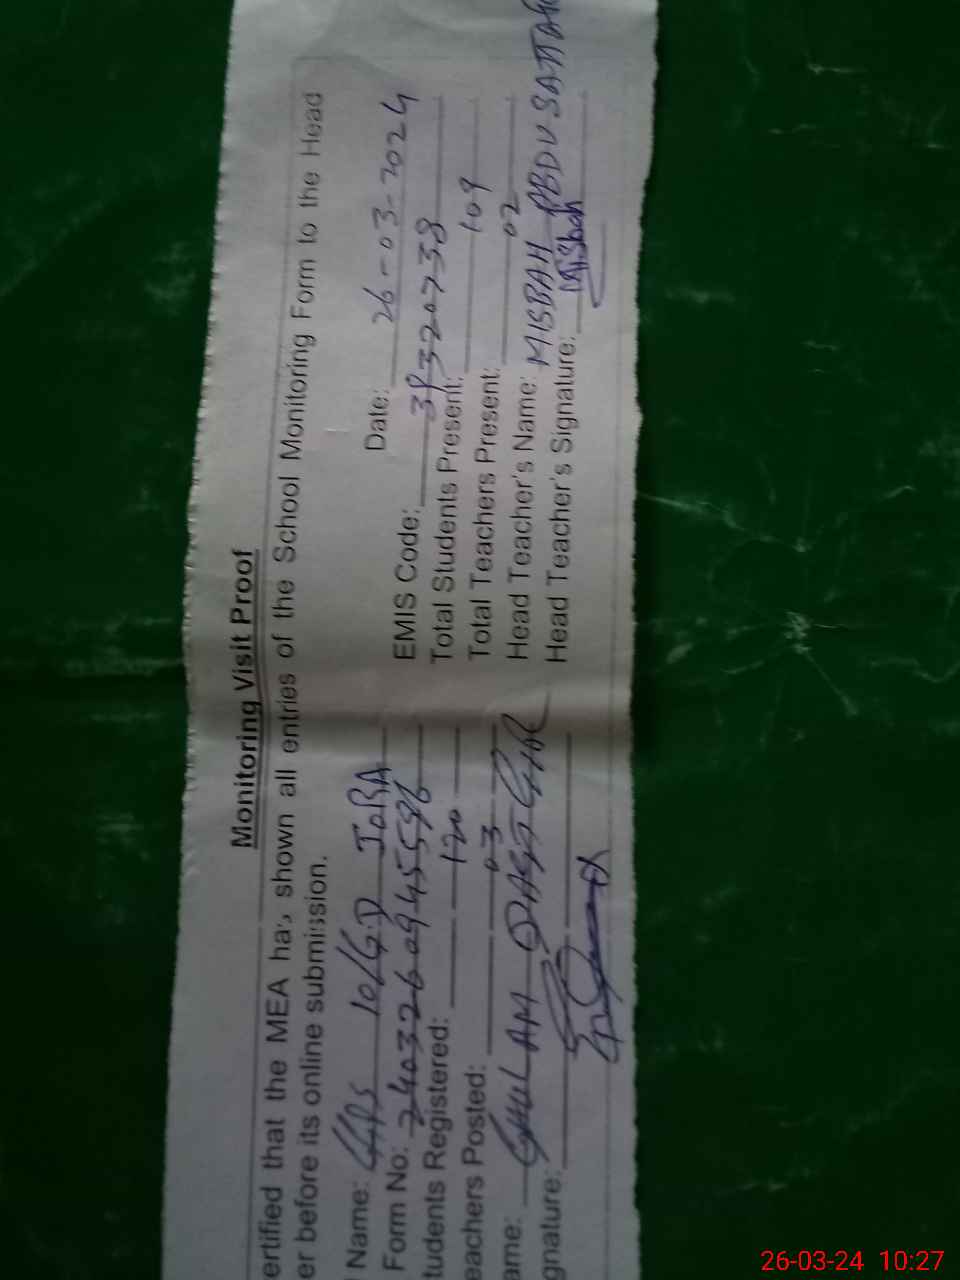 Monitoring Visit Proof
ertified that the MEA has shown all entries of the School Monitoring Form to the Head
er before its online submission.
Name: GPS 10/G.D JORA Date: 26-03-2024
Form No: EMIS Code:
tudents Registered: 120 Total Students Present: 109
eachers Posted: 03 Total Teachers Present: 02
ame: GHULAM Head Teacher's Name: MISBAH ABDUSATTAR
gnature: Head Teacher's Signature: Misbah
26-03-24 10:27